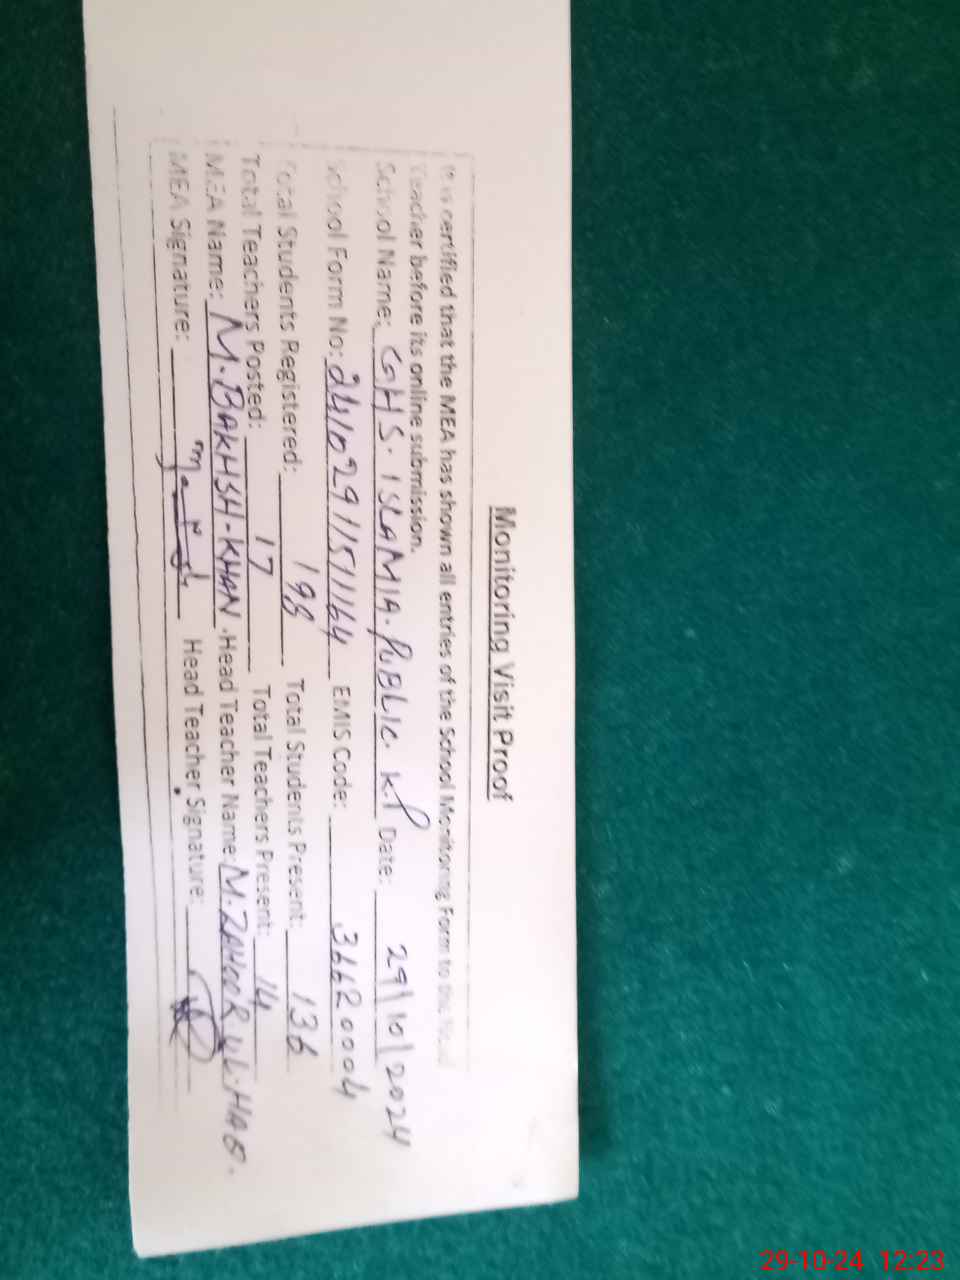 Monitoring Visit Proof
It is certified that the MEA has shown all entries of the School Monitoring Form to the Head
Teacher before its online submission.
School Name: GHS. ISLAMIA. PUBLIC. K.P Date: 29/10/2024
School Form No: 24102911511164 EMIS Code: 36620004
Total Students Registered: 198 Total Students Present: 136
Total Teachers Posted: 17 Total Teachers Present: 14
MEA Name: M. BAKHSH-KHAN. Head Teacher Name: M. ZAHOOR. UL. HAQ.
MEA Signature: Head Teacher Signature:
29-10-24 12:23